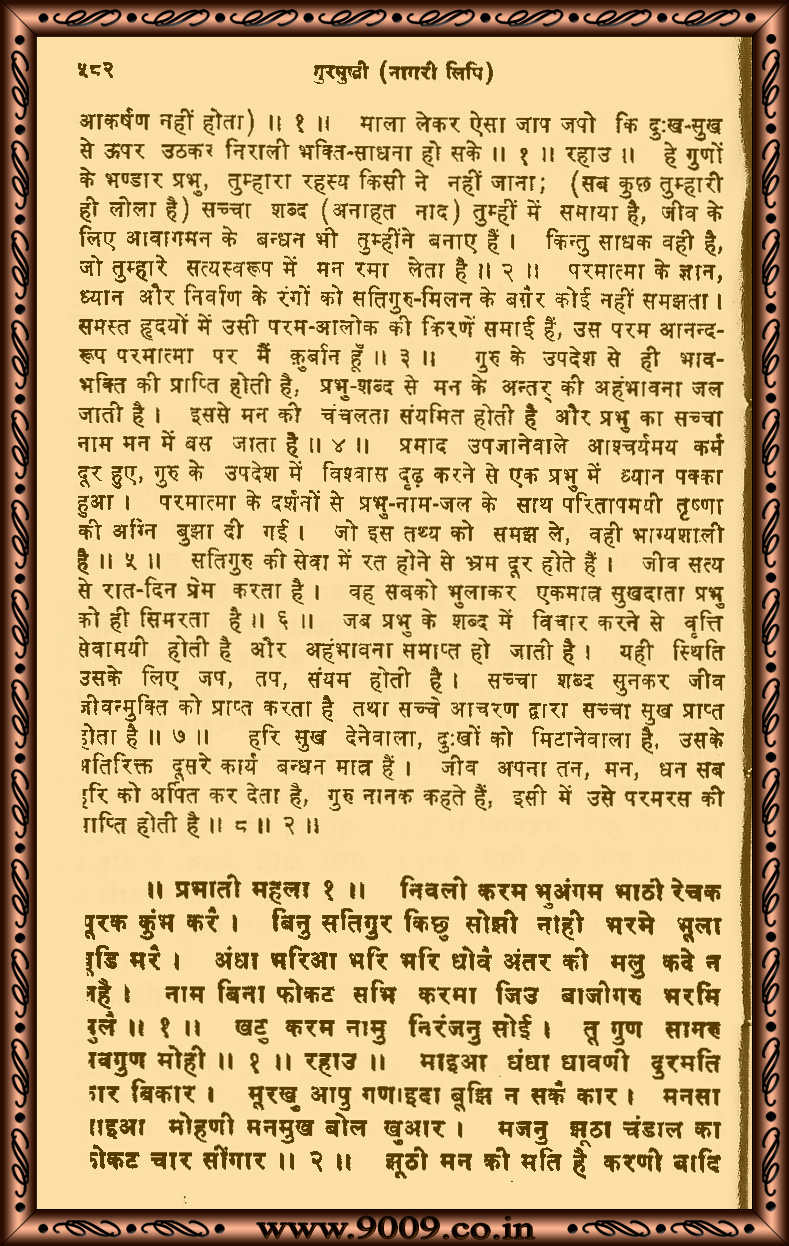 ५८२ गुरमुखी (नागरी लिपि)
आकर्षण नहीं होता) ॥ १ ॥ माला लेकर ऐसा जाप जपो कि दुःख-सुख
से ऊपर उठकर निराली भक्ति-साधना हो सके ॥ १ ॥ रहाउ ॥ हे गुणों
के भण्डार प्रभु, तुम्हारा रहस्य किसी ने नहीं जाना; (सब कुछ तुम्हारी
ही लीला है) सच्चा शब्द (अनाहत नाद) तुम्हीं में समाया है, जीव के
लिए आवागमन के बन्धन भी तुम्हींने बनाए हैं । किन्तु साधक वही है,
जो तुम्हारे सत्यस्वरूप में मन रमा लेता है ॥ २ ॥ परमात्मा के ज्ञान,
ध्यान और निर्वाण के रंगों को सतिगुरु-मिलन के बग़ैर कोई नहीं समझता ।
समस्त हृदयों में उसी परम-आलोक की किरणें समाई हैं, उस परम आनन्द-
रूप परमात्मा पर मैं क़ुर्बान हूँ ॥ ३ ॥ गुरु के उपदेश से ही भाव-
भक्ति की प्राप्ति होती है, प्रभु-शब्द से मन के अन्तर् की अहंभावना जल
जाती है । इससे मन की चंचलता संयमित होती है और प्रभु का सच्चा
नाम मन में बस जाता है ॥ ४ ॥ प्रमाद उपजानेवाले आश्चर्यमय कर्म
दूर हुए, गुरु के उपदेश में विश्वास दृढ़ करने से एक प्रभु में ध्यान पक्का
हुआ । परमात्मा के दर्शनों से प्रभु-नाम-जल के साथ परितापमयी तृष्णा
की अग्नि बुझा दी गई । जो इस तथ्य को समझ ले, वही भाग्यशाली
है ॥ ५ ॥ सतिगुरु की सेवा में रत होने से भ्रम दूर होते हैं । जीव सत्य
से रात-दिन प्रेम करता है । वह सबको भुलाकर एकमात्र सुखदाता प्रभु
को ही सिमरता है ॥ ६ ॥ जब प्रभु के शब्द में विचार करने से वृत्ति
सेवामयी होती है और अहंभावना समाप्त हो जाती है । यही स्थिति
उसके लिए जप, तप, संयम होती है । सच्चा शब्द सुनकर जीव
जीवन्मुक्ति को प्राप्त करता है तथा सच्चे आचरण द्वारा सच्चा सुख प्राप्त
होता है ॥ ७ ॥ हरि सुख देनेवाला, दुःखों को मिटानेवाला है, उसके
अतिरिक्त दूसरे कार्य बन्धन मात्र हैं । जीव अपना तन, मन, धन सब
हरि को अर्पित कर देता है, गुरु नानक कहते हैं, इसी में उसे परमरस की
प्राप्ति होती है ॥ ८ ॥ २ ॥
॥ प्रभाती महला १ ॥ निवली करम भुअंगम भाठी रेचक
पूरक कुंभ करै । बिनु सतिगुर किछु सोझी नाही भरमे भूला
बूडि मरै । अंधा भरिआ भरि भरि धोवै अंतर की मलु कदे न
लहै । नाम बिना फोकट सभि करमा जिउ बाजीगरु भरमि
भुलै ॥ १ ॥ खटु करम नामु निरंजनु सोई । तू गुण सागरु
अवगुण मोही ॥ १ ॥ रहाउ ॥ माइआ धंधा धावणी दुरमति
कार बिकार । मूरखु आपु गणाइदा बूझि न सकै कार । मनसा
माइआ मोहणी मनमुख बोल खुआर । मजनु झूठा चंडाल का
फोकट चार सींगार ॥ २ ॥ झूठी मन की मति है करणी बादि
www.9009.co.in